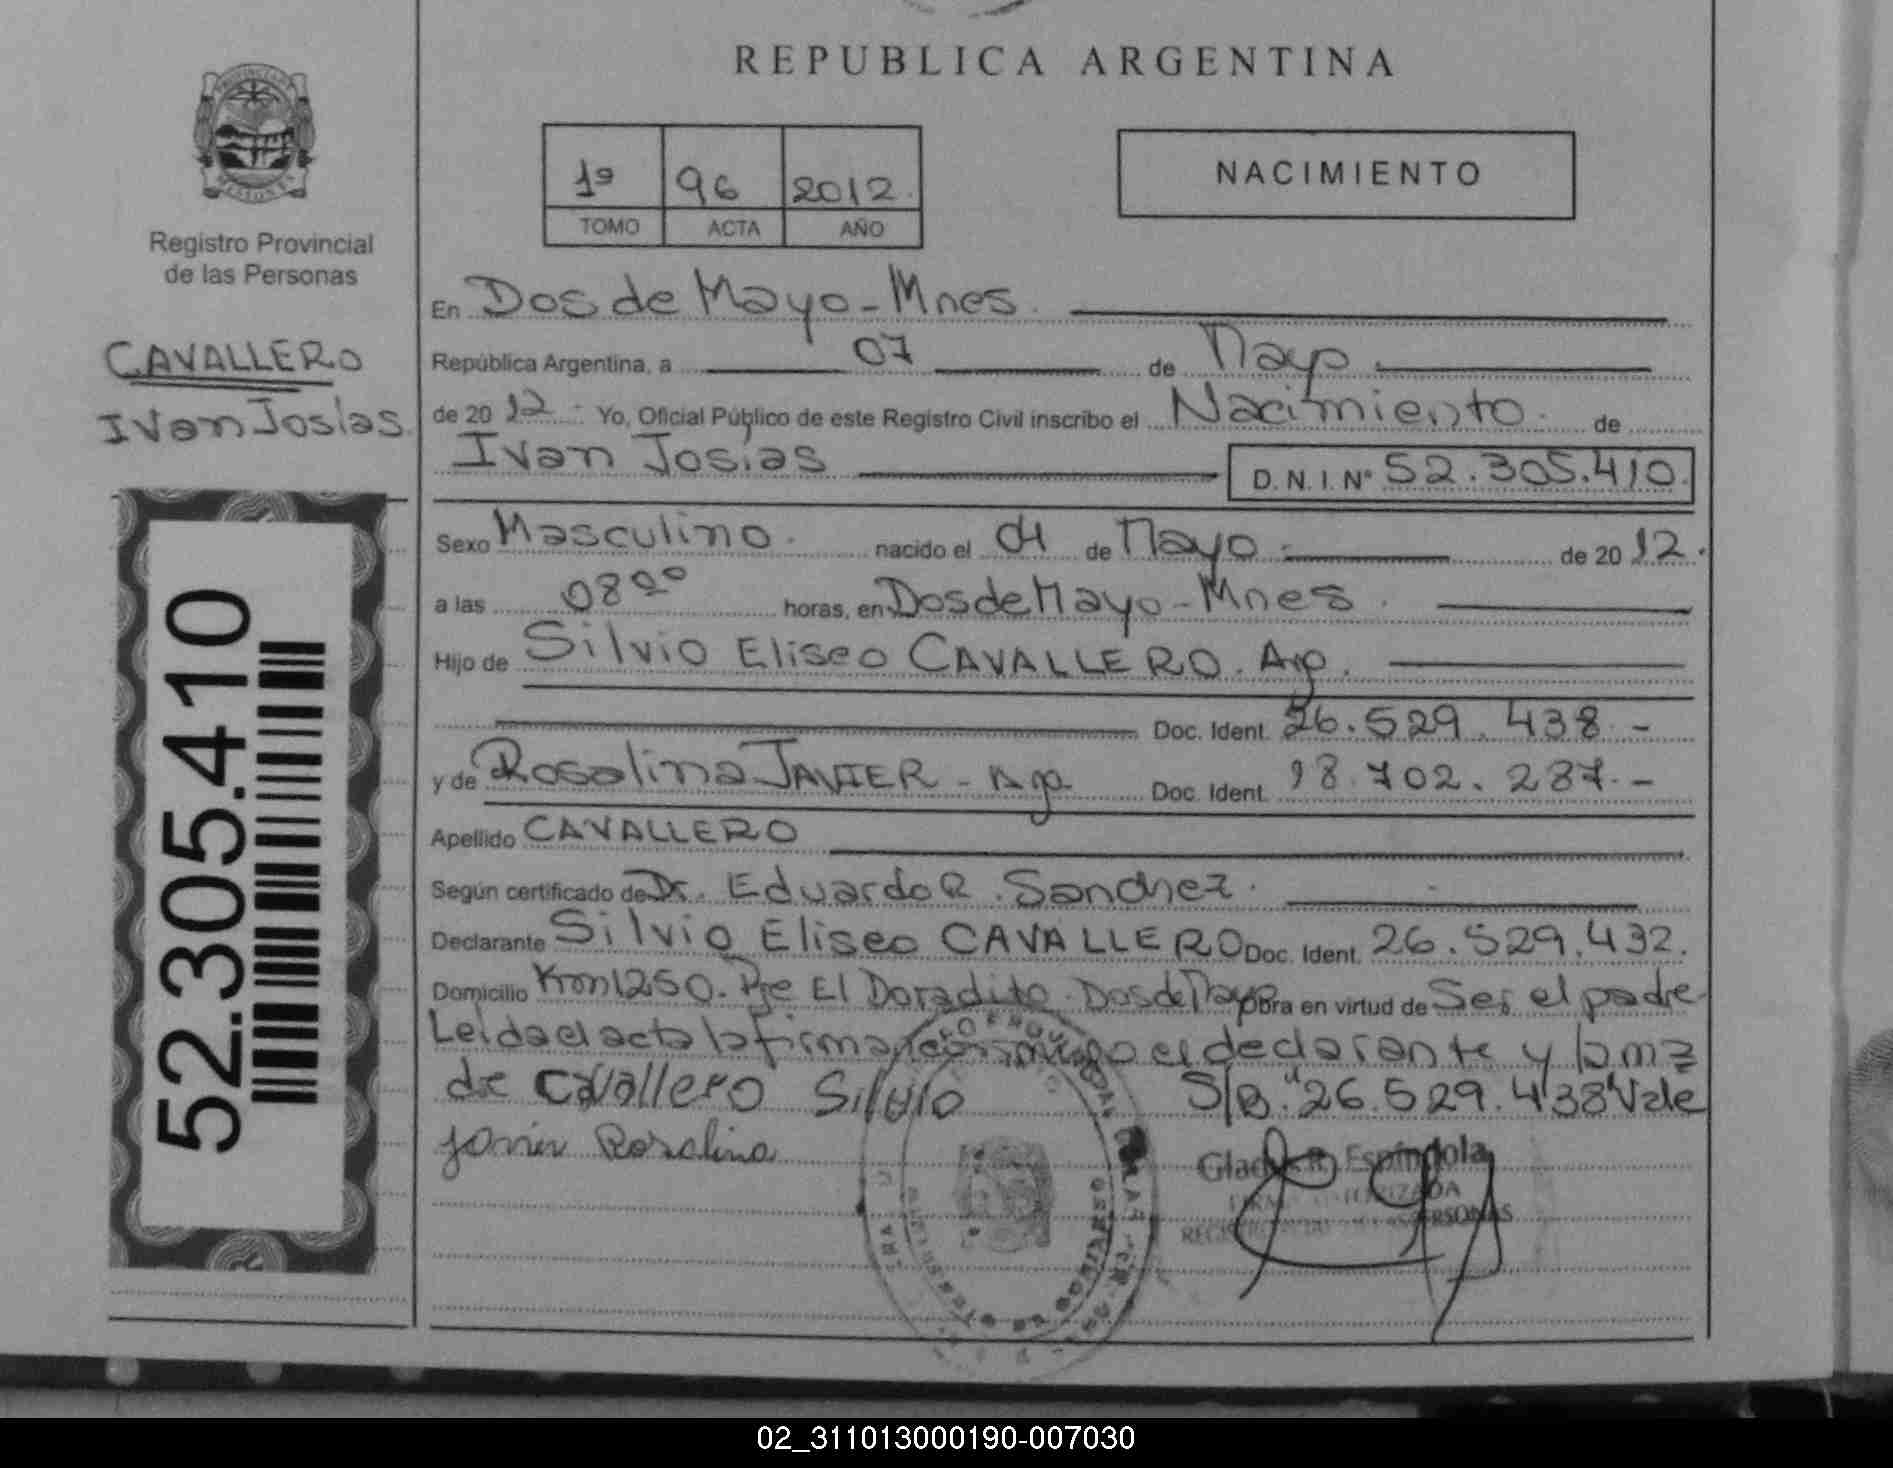 REPUBLICA ARGENTINA
PROVINCIA DE
MISIONES
Registro Provincial
de las Personas
1º 96 2012.
TOMO ACTA AÑO
NACIMIENTO
CAVALLERO
Ivan Josias.
52.305.410
En Dos de Mayo - Mnes.
República Argentina, a 07 de Mayo
de 20 12.- Yo, Oficial Público de este Registro Civil inscribo el Nacimiento. de
Ivan Josias D.N.I.Nº 52.305.410.
Sexo Masculino. nacido el 04 de Mayo.- de 20 12.
a las 08 00 horas, en Dos de Mayo - Mnes.
Hijo de Silvio Eliseo CAVALLERO. Arg.
Doc. Ident. 26.529.438.-
y de Rosalina JAVIER - Arg. Doc. Ident. 18.702.287.-
Apellido CAVALLERO
Según certificado de Dr. Eduardo R. Sanchez.
Declarante Silvio Eliseo CAVALLERO Doc. Ident. 26.529.432.
Domicilio Km 1250. Pje El Doradito. Dos de Mayo Obra en virtud de Ser el padre
Leida el acta la firma conmigo el declarante y la ma
dre Cavallero Silvio S/B. "26.529.438" Vale
Javier Rosalina
Gladys R. Espíndola
FIRMA AUTORIZADA
PERSONAS
02_311013000190-007030